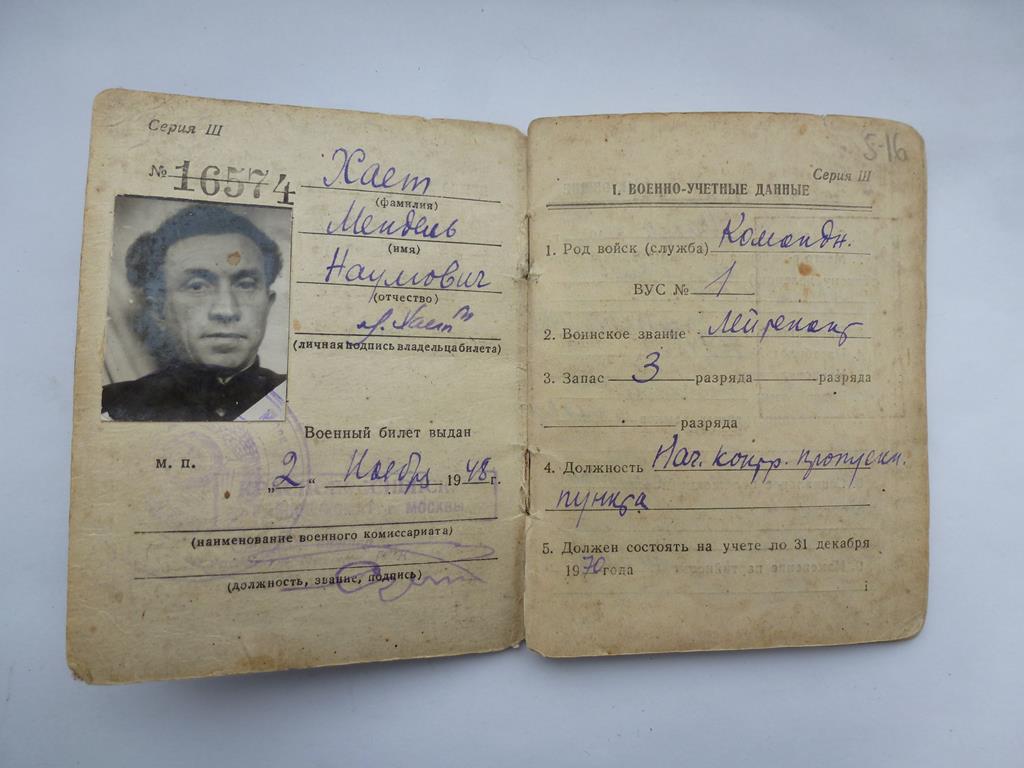 Серия Ш
№ 16574
Хает
(фамилия)
Мендель
(имя)
Наумович
(отчество)
Хает
(личная подпись владельца билета)
Военный билет выдан
м. п.
„2“ Ноября 1948 г.
г. МОСКВЫ
(наименование военного комиссариата)
(должность, звание, подпись)
5-16
Серия Ш
I. ВОЕННО-УЧЕТНЫЕ ДАННЫЕ
1. Род войск (служба) Командн.
ВУС № 1
2. Воинское звание Лейтенант
3. Запас 3 разряда разряда
разряда
4. Должность Нач. контр. пропускн.
пункта
5. Должен состоять на учете до 31 декабря
1970 года
1